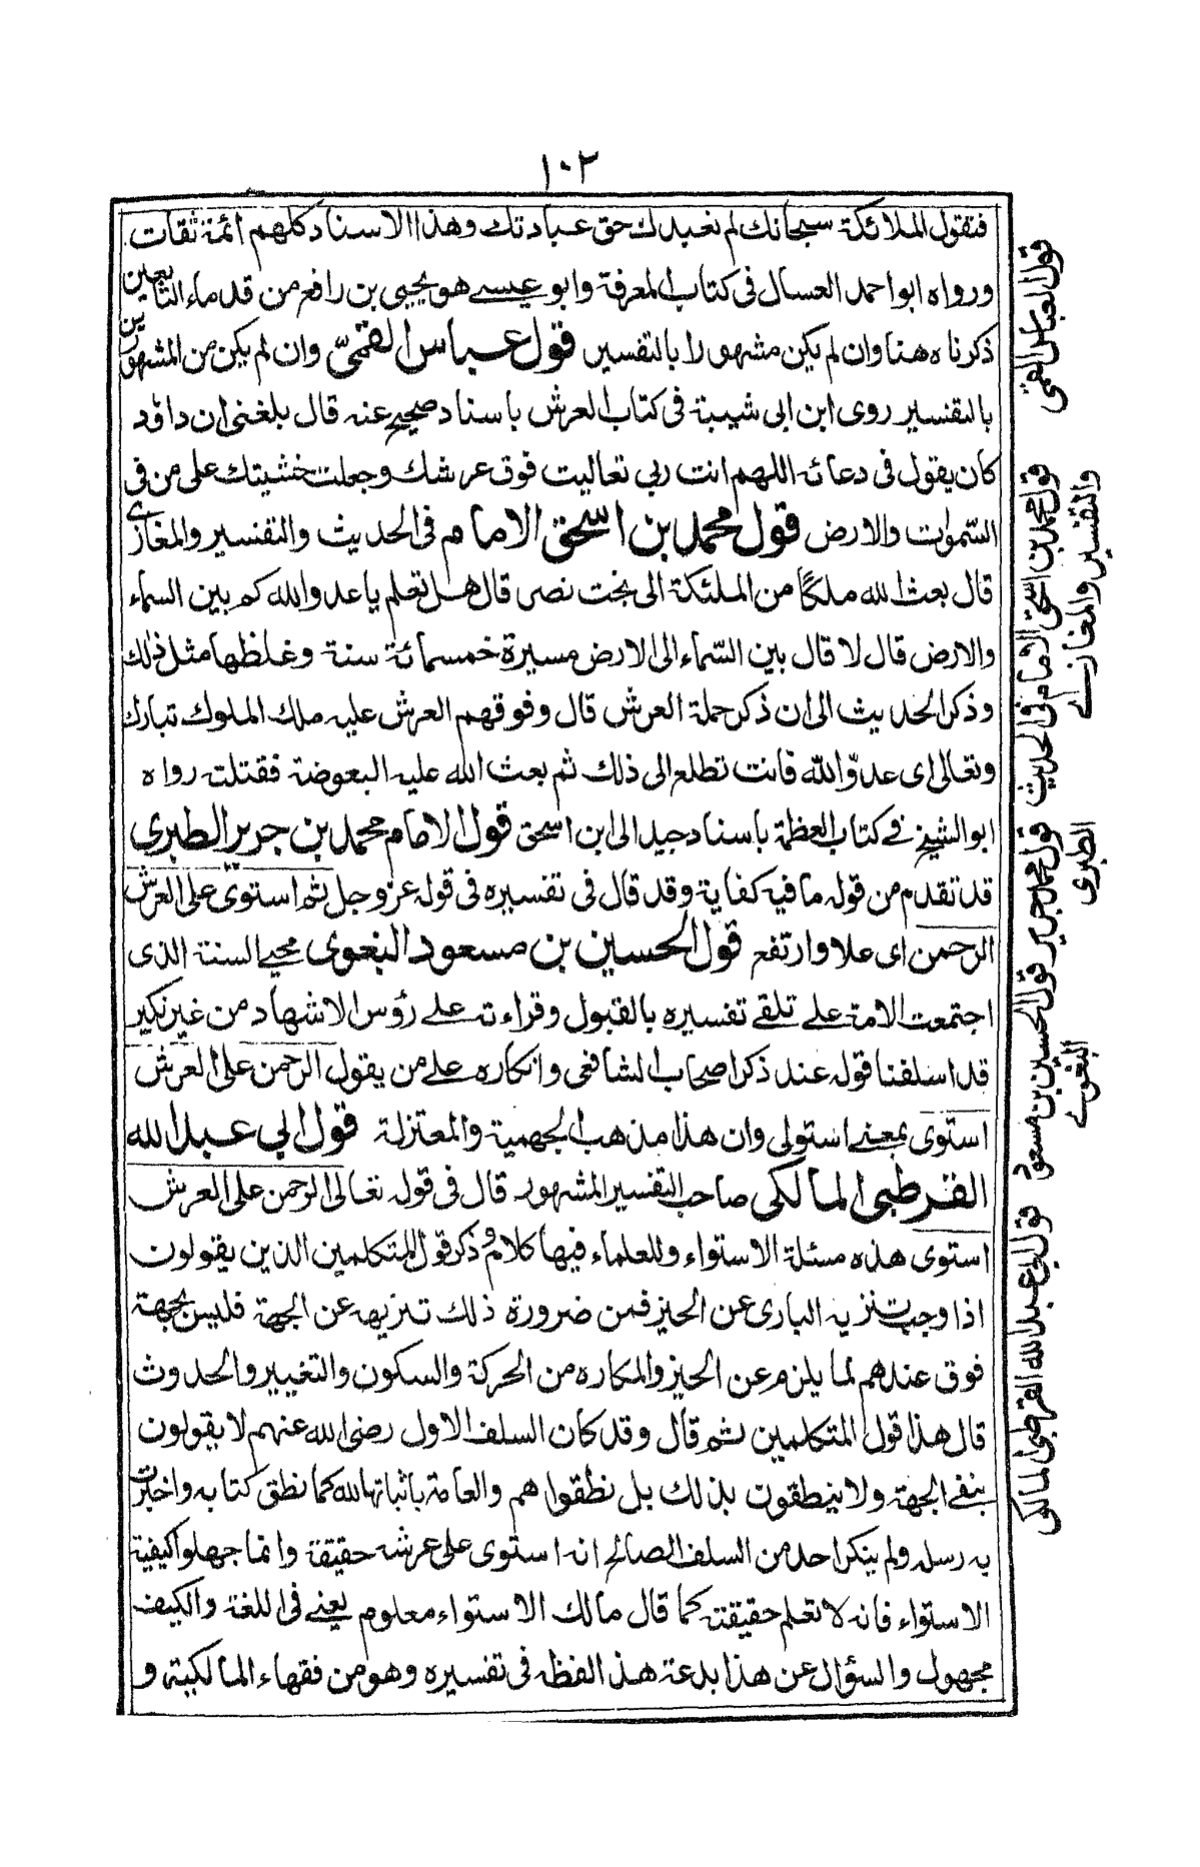 ١٠٢
فتقول الملائكة سبحانك لم نعبدك حق عبادتك وهذا الاسناد كلهم ائمة ثقات
ورواه ابو احمد العسال فى كتاب المعرفة وابو عيسے هو يحيى بن رافع من قدماء التابعين
ذكرناه هنا وان لم يكن مشهورا بالتفسير قول عباس القمىّ وان لم يكن من المشهورين
بالتفسير روى ابن ابى شيبة فى كتاب العرش باسناد صحيح عنه قال بلغنى ان داؤد
كان يقول فى دعائه اللهم انت ربي تعاليت فوق عرشك وجعلت خشيتك على من فى
السّموات والارض قول محمد بن اسحٰق الامام فى الحديث والتفسير والمغازے
قال بعث الله ملكًا من الملئكة الى بخت نصر قال هل تعلم يا عدو الله كم بين السماء
والارض قال لا قال بين السّماء الى الارض مسيرة خمسمائة سنة وغلظها مثل ذلك
وذكر الحديث الى ان ذكر حملة العرش قال وفوقهم العرش عليه ملك الملوك تبارك
وتعالى اى عدوّ الله فانت تطلع الى ذلك ثم بعث الله عليه البعوضة فقتلته رواه
ابو الشيخ فے كتاب العظمة باسناد جيد الى ابن اسحق قول الامام محمد بن جرير الطبرى
قد تقدم من قوله ما فيه كفاية وقد قال فى تفسيره فى قوله عز وجل ثم استوى على العرش
الرحمن اى علا وارتفع قول الحسين بن مسعود البغوى محيے السنة الذى
اجتمعت الامة علے تلقے تفسيره بالقبول وقراءته علے رؤس الاشهاد من غير نكير
قد اسلفنا قوله عند ذكر اصحاب الشافعى وانكاره علے من يقول الرحمن على العرش
استوى بمعنے استولى وان هذا مذهب الجهمية والمعتزلة قول ابي عبد الله
القرطبى المالكى صاحب التفسير المشهور قال فى قوله تعالى الرحمن على العرش
استوى هذه مسئلة الاستواء وللعلماء فيها كلام وذكر قول المتكلمين الذين يقولون
اذا وجب تنزيه البارى عن الحيز فمن ضرورة ذلك تنزيهه عن الجهة فليس بجهة
فوق عندهم لما يلزم عن الحيز والمكاره من الحركة والسكون والتغيير والحدوث
قال هذا قول المتكلمين ثم قال وقد كان السلف الاول رضى الله عنهم لا يقولون
بنفے الجهة ولا ينطقون بذلك بل نطقوا هم والعامة باثباتها لله كما نطق كتابه واخبرت
به رسله ولم ينكر احد من السلف الصالح انه استوى على عرشه حقيقة وانما جهلوا كيفية
الاستواء فانه لا تعلم حقيقته كما قال مالك الاستواء معلوم يعنے فى اللغة والكيف
مجهول والسؤال عن هذا بدعة هذ الفظه فى تفسيره وهو من فقهاء المالكية و
قول العباس القمى
قول محمد بن اسحق الامام فى الحديث
والتفسير والمغازے
قول محمد جرير
الطبرى
قول الحسين بن مسعود
البغوے
قول ابى عبد الله القرطبى المالكى